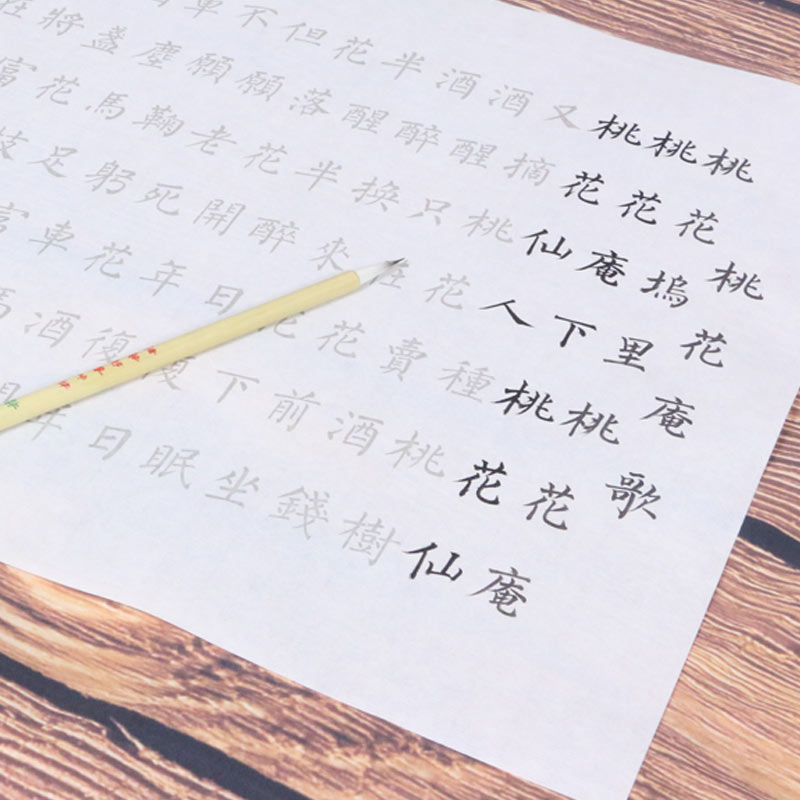 桃花庵歌
桃花塢里桃花庵
桃花庵下桃花仙
桃花仙人種桃樹
又摘桃花賣酒錢
酒醒只在花前坐
酒醉換來花下眠
半醒半醉日復日
花落花開年復年
但願老死花酒間
不願鞠躬車馬
車塵馬足富
盞花枝
將富